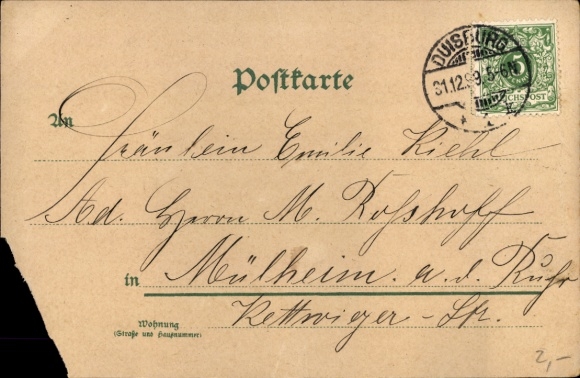 Postkarte
DUISBURG
31.12.99. 5-6N
5
REICHSPOST
An
Fräulein Emilie Kiehl
Ad. Herrn M. Roßhoff
in Mülheim. a. d. Ruhr
Kettwiger-Str.
Wohnung
(Straße und Hausnummer)
2,-